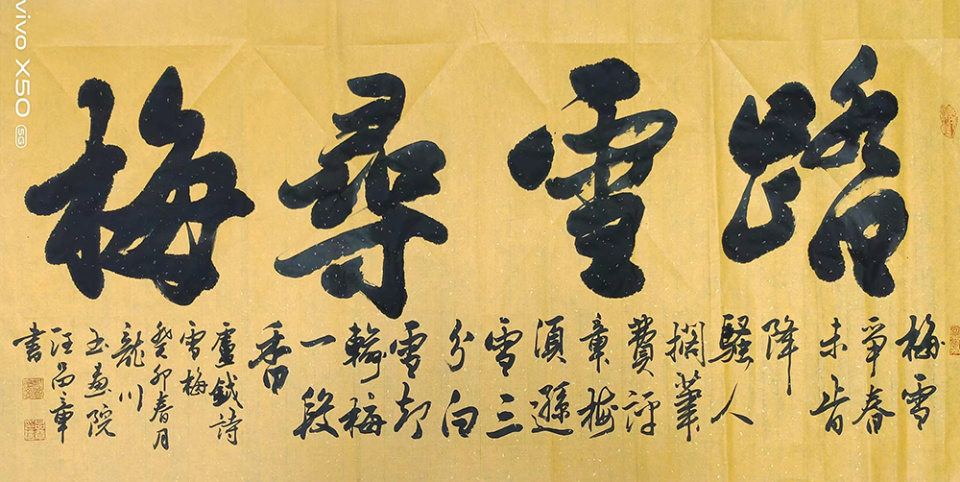 踏雪尋梅
梅雪
爭春
未肯
降
騷人
擱筆
費評
章梅
須遜
雪三
分白
雪却
輸梅
一段
香
盧鉞詩
雪梅
癸卯春月
龍川
畫院
汪
章
書
vivo X50 5G